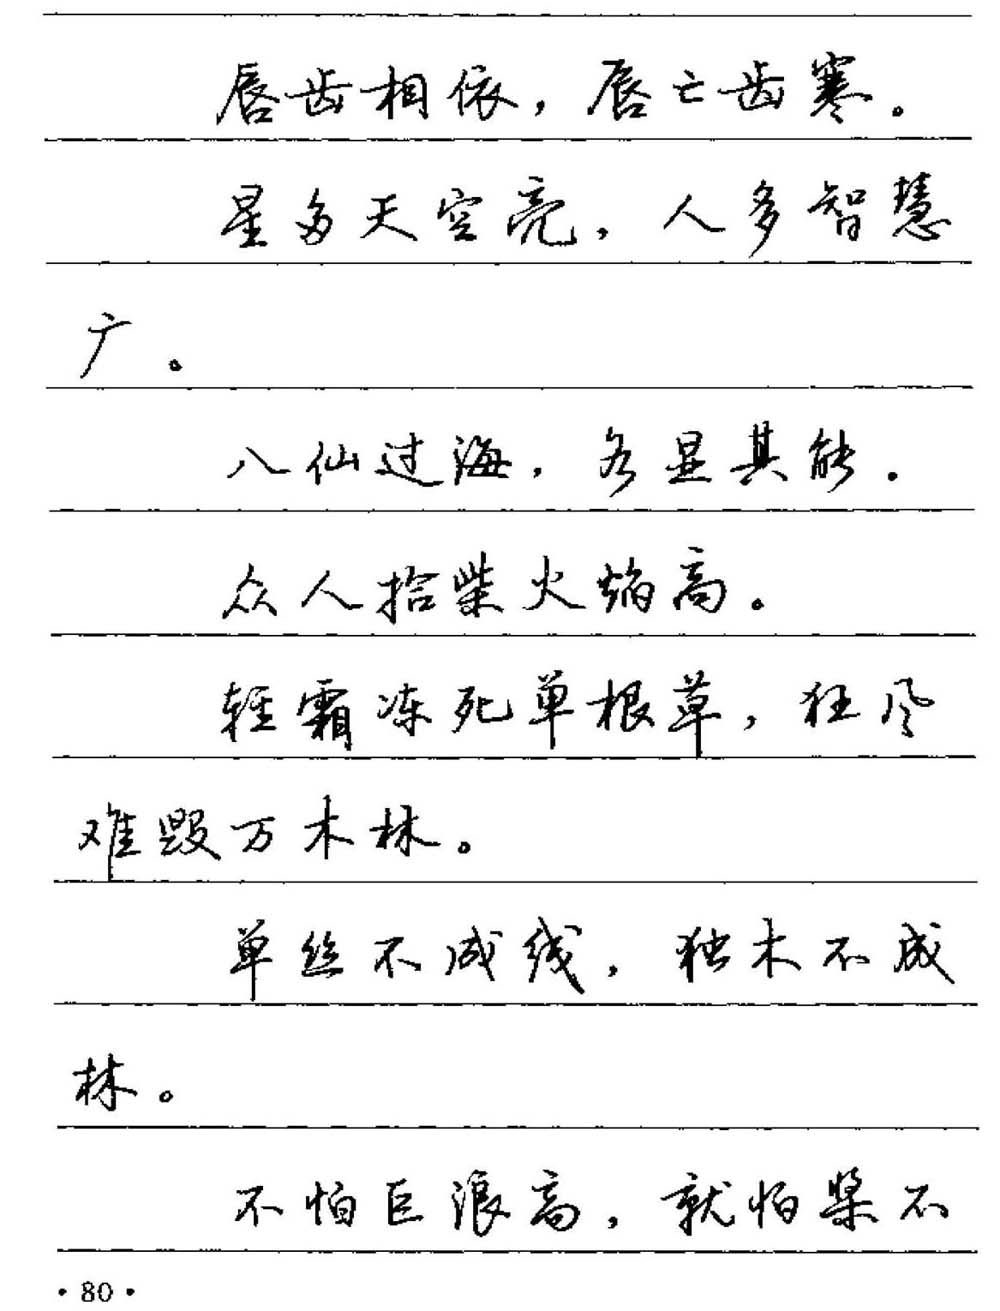 唇齿相依，唇亡齿寒。
星多天空亮，人多智慧
广。
八仙过海，各显其能。
众人拾柴火焰高。
轻霜冻死单根草，狂风
难毁万木林。
单丝不成线，独木不成
林。
不怕巨浪高，就怕桨不
·80·